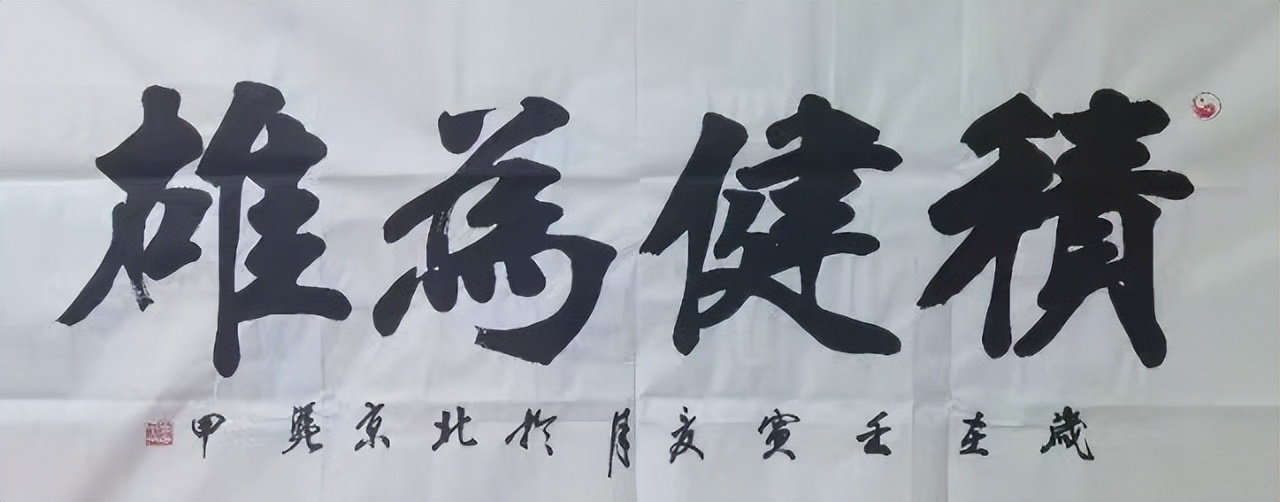 積健為雄
歲在壬寅亥月於北京 甲